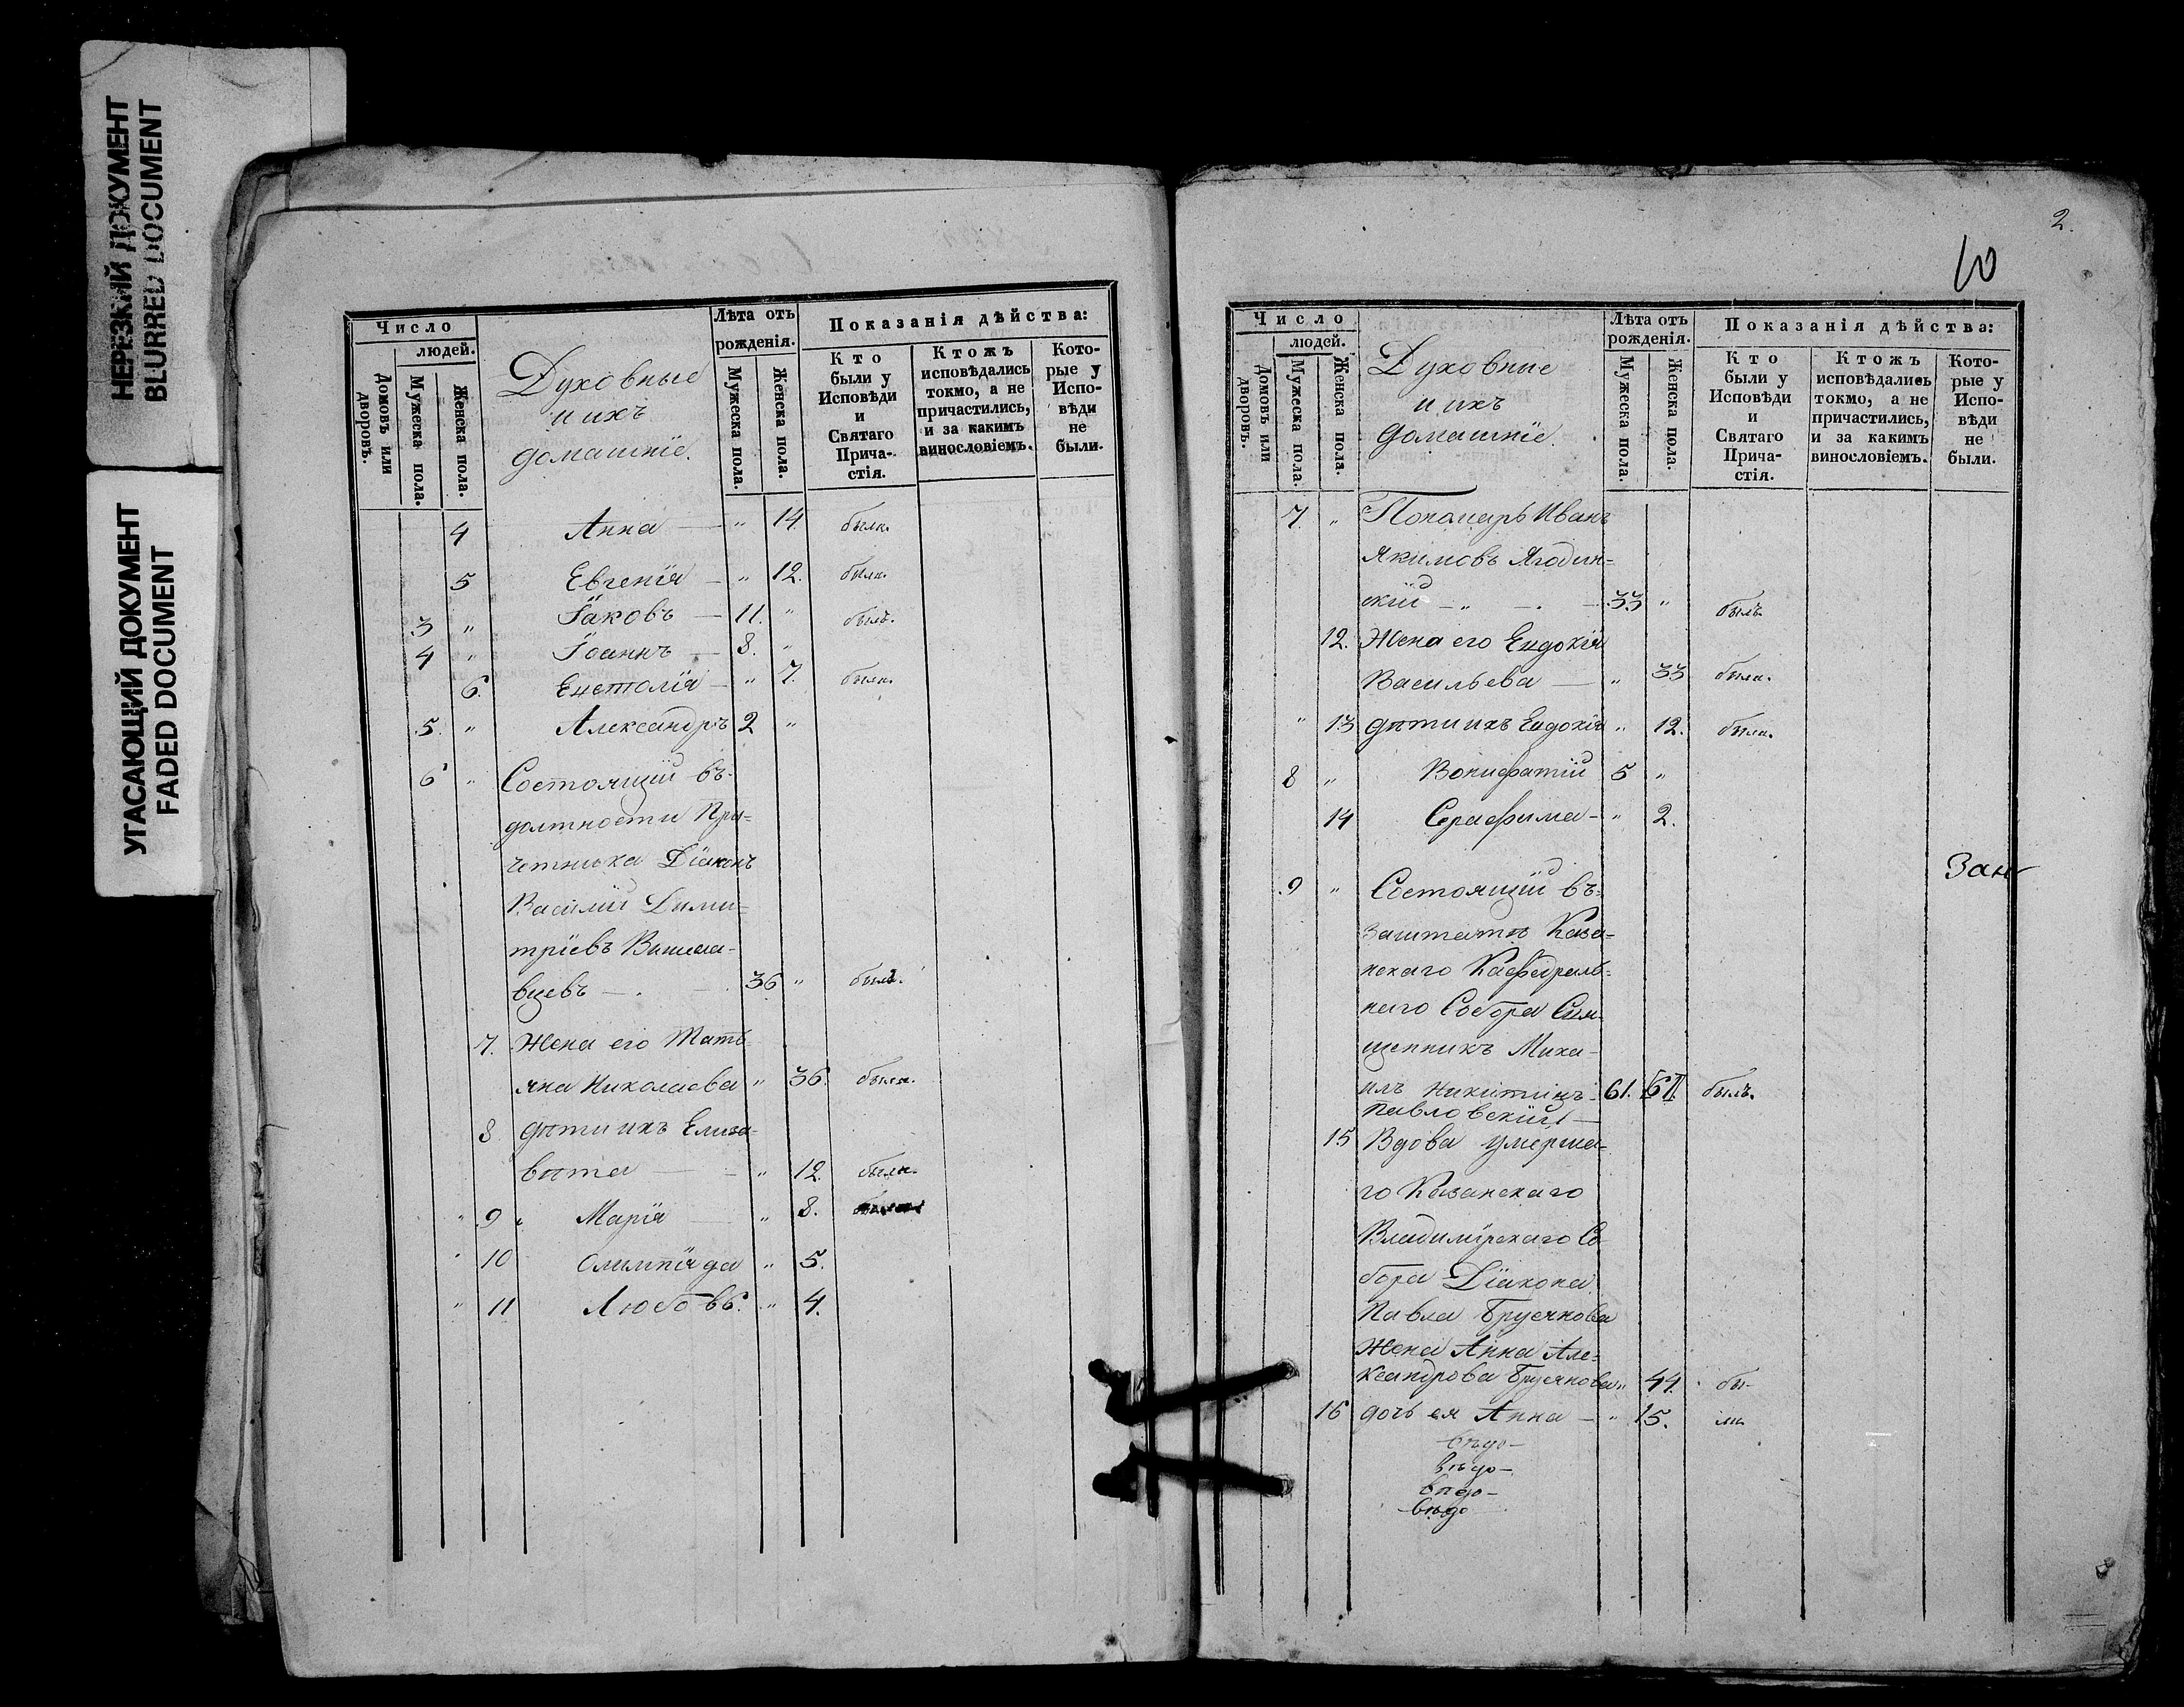 НЕРЕЗКИЙ ДОКУМЕНТ
BLURRED DOCUMENT
УГАСАЮЩИЙ ДОКУМЕНТ
FADED DOCUMENT
Число
людей.
Домовъ или дворовъ.
Мужеска пола.
Женска пола.
Духовные
и ихъ
домашніе.
Лѣта отъ
рожденія.
Мужеска пола.
Женска пола.
Показанія дѣйства:
Кто
были у
Исповѣди
и
Святаго
Прича-
стія.
Ктожъ
исповѣдались
токмо, а не
причастились,
и за какимъ
винословіемъ.
Кото-
рые у
Испо-
вѣди
не
были.
4 Анна — " 14. была.
5 Евгенія — " 12. была.
3 " Іаковъ — 11. " былъ.
4 " Іоаннъ — 8. "
6. Енстолія — " 7. была.
5. " Александръ 2 "
6 " Состоящій въ
должности При-
четника Діаконъ
Василій Дими-
тріевъ
вцевъ — 36 " былъ.
7. Жена его Тать-
яна Николаева " 36. была.
8 дѣти ихъ Елиза-
вѣта — " 12. была.
" 9 " Марія — " 8.
" 10 Олимпіада " 5.
" 11 Любовь. " 4.
2.
10
Число
людей.
Домовъ или дворовъ.
Мужеска пола.
Женска пола.
Духовные
и ихъ
домашніе.
Лѣта отъ
рожденія.
Мужеска пола.
Женска пола.
Показанія дѣйства:
Кто
были у
Исповѣди
и
Святаго
Прича-
стія.
Ктожъ
исповѣдались
токмо, а не
причастились,
и за какимъ
винословіемъ.
Кото-
рые у
Испо-
вѣди
не
были.
7. " Пономарь Иванъ
Якимовъ Ягодин-
скій — 33 " былъ
12. Жена его Евдокія
Васильева — " 33 была.
" 13 дѣти ихъ Евдокія " 12. была.
8 " Вонифатій 5 "
14 Серафима — " 2.
Зан
9 " Состоящій въ
заштатѣ Каза-
нскаго Кафедраль-
наго Собора Свя-
щенникъ Миха-
илъ Никитинъ 61. 61. былъ.
Павловскій —
15 Вдова умерша-
го Казанскаго
Владимірскаго Со-
бора Діакона
Павла Бруснкова
Жена Анна Але-
ксандрова " 44. бы-
16 дочь ея Анна — " 15. ли
вѣдо-
вѣдо-
вѣдо-
вѣдо